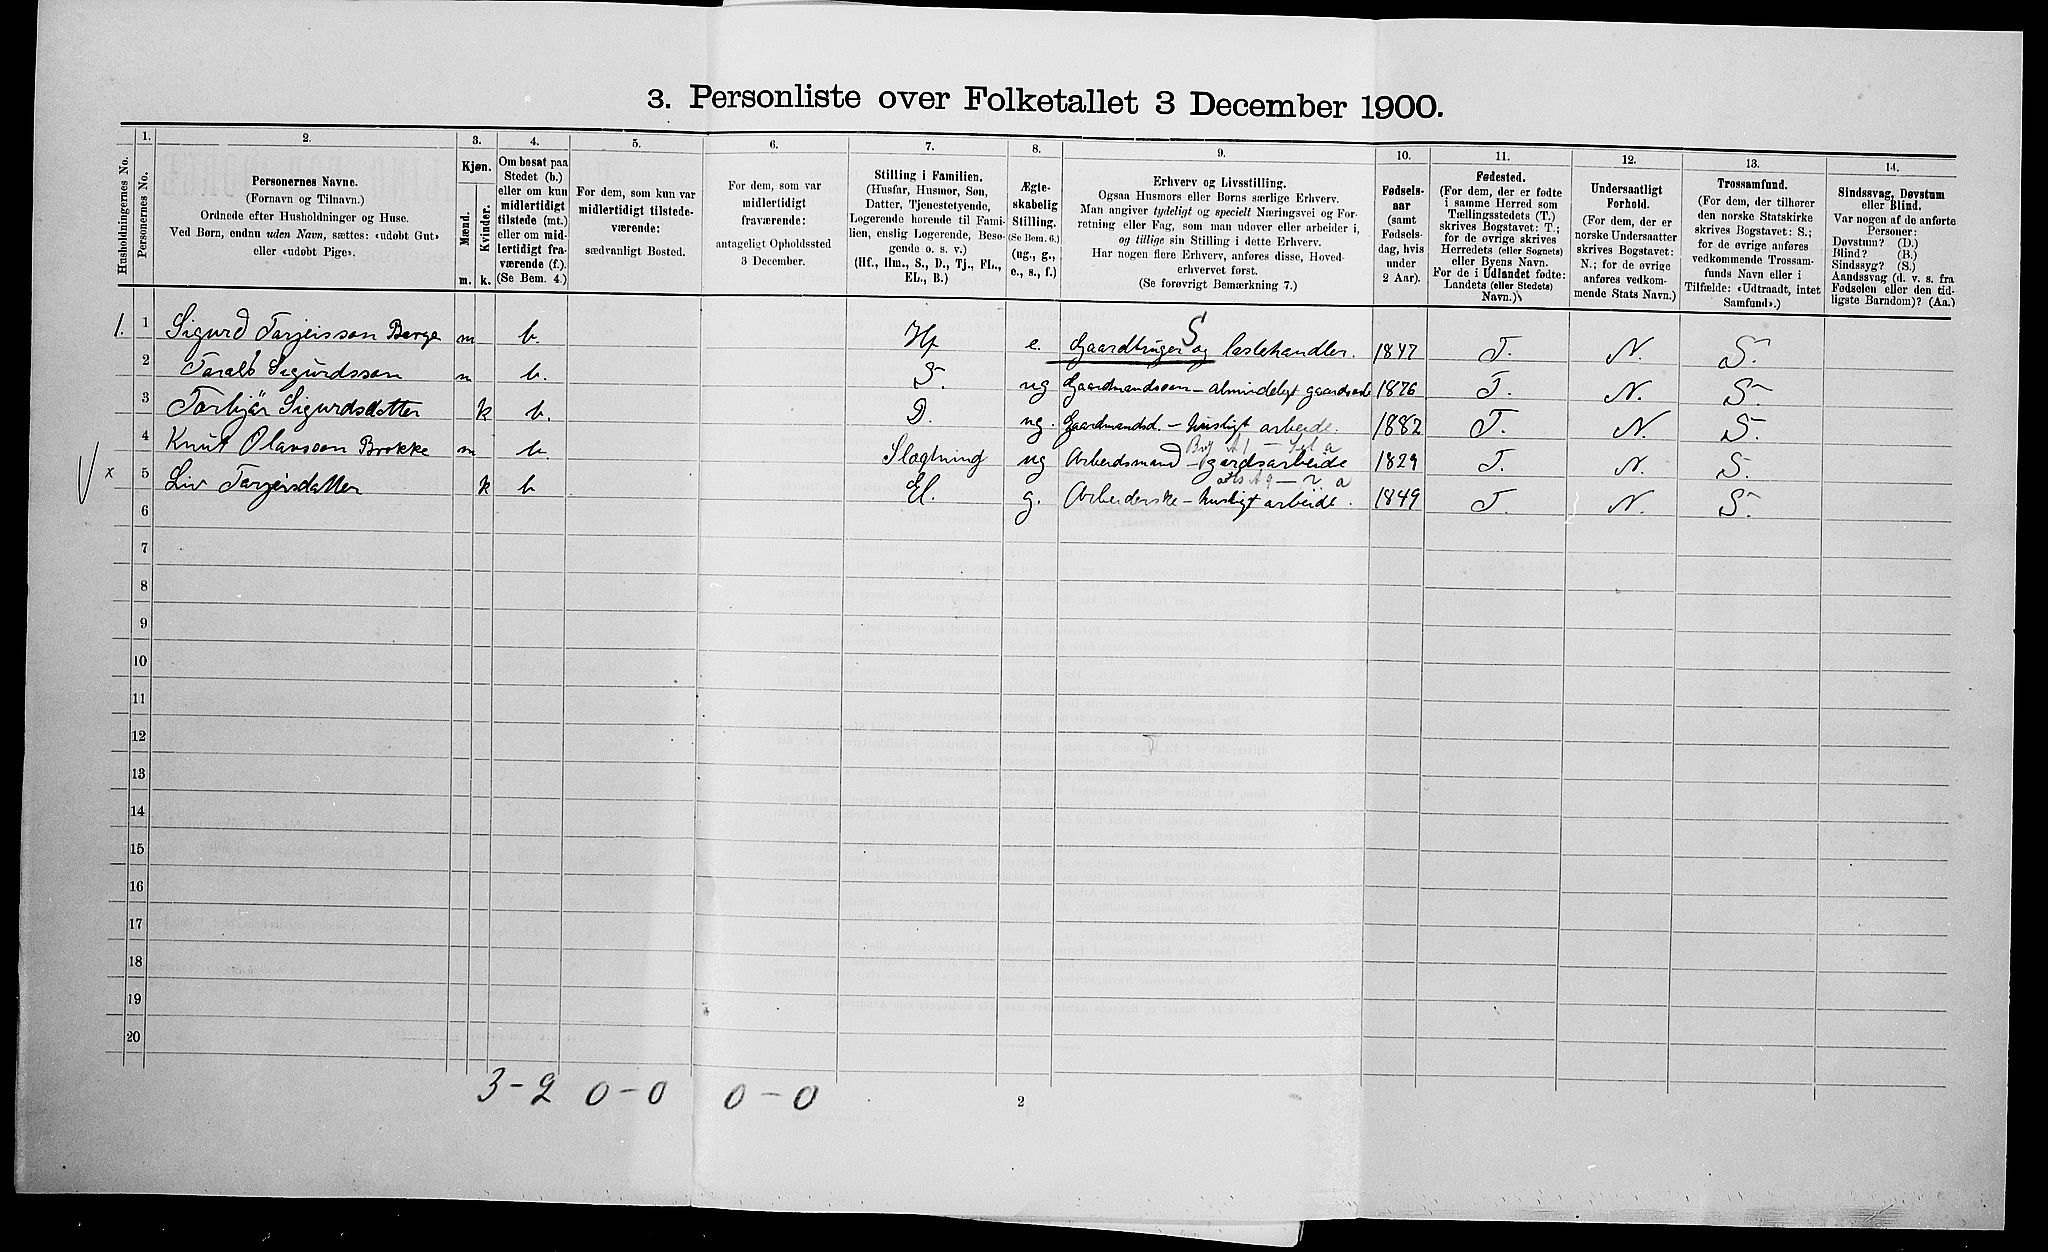 3. Personliste over Folketallet 3 December 1900.
Husholdningernes No.
1.
Personernes No.
2.
Personernes Navne.
(Fornavn og Tilnavn.)
Ordnede efter Husholdninger og Huse.
Ved Børn, endnu uden Navn, sættes: «udøbt Gut»
eller «udøbt Pige».
3.
Kjøn.
Mænd.
Kvinder.
m. k.
4.
Om bosat paa
Stedet (b.)
eller om kun
midlertidigt
tilstede (mt.)
eller om mid-
lertidigt fra-
værende (f.).
(Se Bem. 4.)
5.
For dem, som kun var
midlertidigt tilstede-
værende:
sædvanligt Bosted.
6.
For dem, som var
midlertidigt
fraværende:
antageligt Opholdssted
3 December.
7.
Stilling i Familien.
(Husfar, Husmor, Søn,
Datter, Tjenestetyende,
Logerende hørende til Fami-
lien, enslig Logerende, Besø-
gende o. s. v.)
(Hf., Hm., S., D., Tj., FL.,
EL., B.)
8.
Ægte-
skabelig
Stilling.
(Se Bem. 6.)
(ug., g.,
e., s., f.)
9.
Erhverv og Livsstilling.
Ogsaa Husmors eller Børns særlige Erhverv.
Man angiver tydeligt og specielt Næringsvei og For-
retning eller Fag, som man udøver eller arbeider i,
og tillige sin Stilling i dette Erhverv.
Har nogen flere Erhverv, anføres disse, Hoved-
erhvervet først.
(Se forøvrigt Bemærkning 7.)
10.
Fødsels-
aar
(samt
Fødsels-
dag, hvis
under
2 Aar).
11.
Fødested.
(For dem, der er fødte
i samme Herred som
Tællingsstedets (T.)
skrives Bogstavet: T.;
for de øvrige skrives
Herredets (eller Sognets)
eller Byens Navn.
For de i Udlandet fødte:
Landets (eller Stedets)
Navn.)
12.
Undersaatligt
Forhold.
(For dem, der er
norske Undersaatter
skrives Bogstavet:
N.; for de øvrige
anføres vedkom-
mende Stats Navn.)
13.
Trossamfund.
(For dem, der tilhører
den norske Statskirke
skrives Bogstavet: S.;
for de øvrige anføres
vedkommende Trossam-
funds Navn eller i
Tilfælde: «Udtraadt, intet
Samfund».)
14.
Sindssvag, Døvstum
eller Blind.
Var nogen af de anførte
Personer:
Døvstum? (D.)
Blind? (B.)
Sindssyg? (S.)
Aandssvag (d. v. s. fra
Fødselen eller den tid-
ligste Barndom)? (Aa.)
S
1. 1 Sigurd Tarjeisson Berge m b. Hf e. Gaardbruger og løslehandler. 1847 T. N. S.
2 Taral Sigurdsson m b. S. ug Gaardmandssøn – almindeligt gaardsarb 1876 T. N. S.
3 Torbjør Sigurdsdatter k b. D. ug. Gaardmandsd. – husligt arbeide. 1882 T. N. S.
4 Knut Olavsson Brokke m b Slægtning ug Arbeidsmand – gardsarbeide 1829 T. N. S.
x 5 Liv Tarjeisdatter k b El. g. Arbeiderske – husligt arbeide. 1849 T. N. S.
6
7
8
9
10
11
12
13
14
15
16
17
18
19
20
3 – 2 0 – 0 0 – 0
2